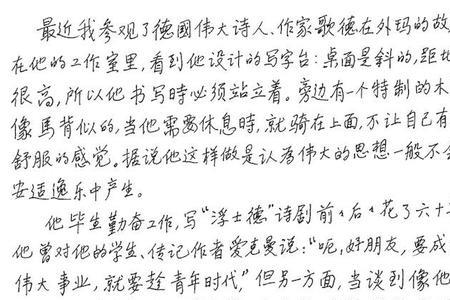 最近我参观了德國伟大诗人、作家歌德在外玛的故
在他的工作室里，看到他设计的写字台：桌面是斜的，距地
很高，所以他书写时必须站立着。旁边有一个特制的木
像馬背似的，当他需要休息时，就骑在上面，不让自己有
舒服的感觉。据说他这样做是认为伟大的思想一般不会
安适逸乐中产生。
他毕生勤奋工作，写“浮士德”诗剧前、后、花了六十
他曾对他的学生、传记作者爱克曼说：“呃，好朋友，要成
伟大事业，就要趁青年时代，”但另一方面，当谈到像他